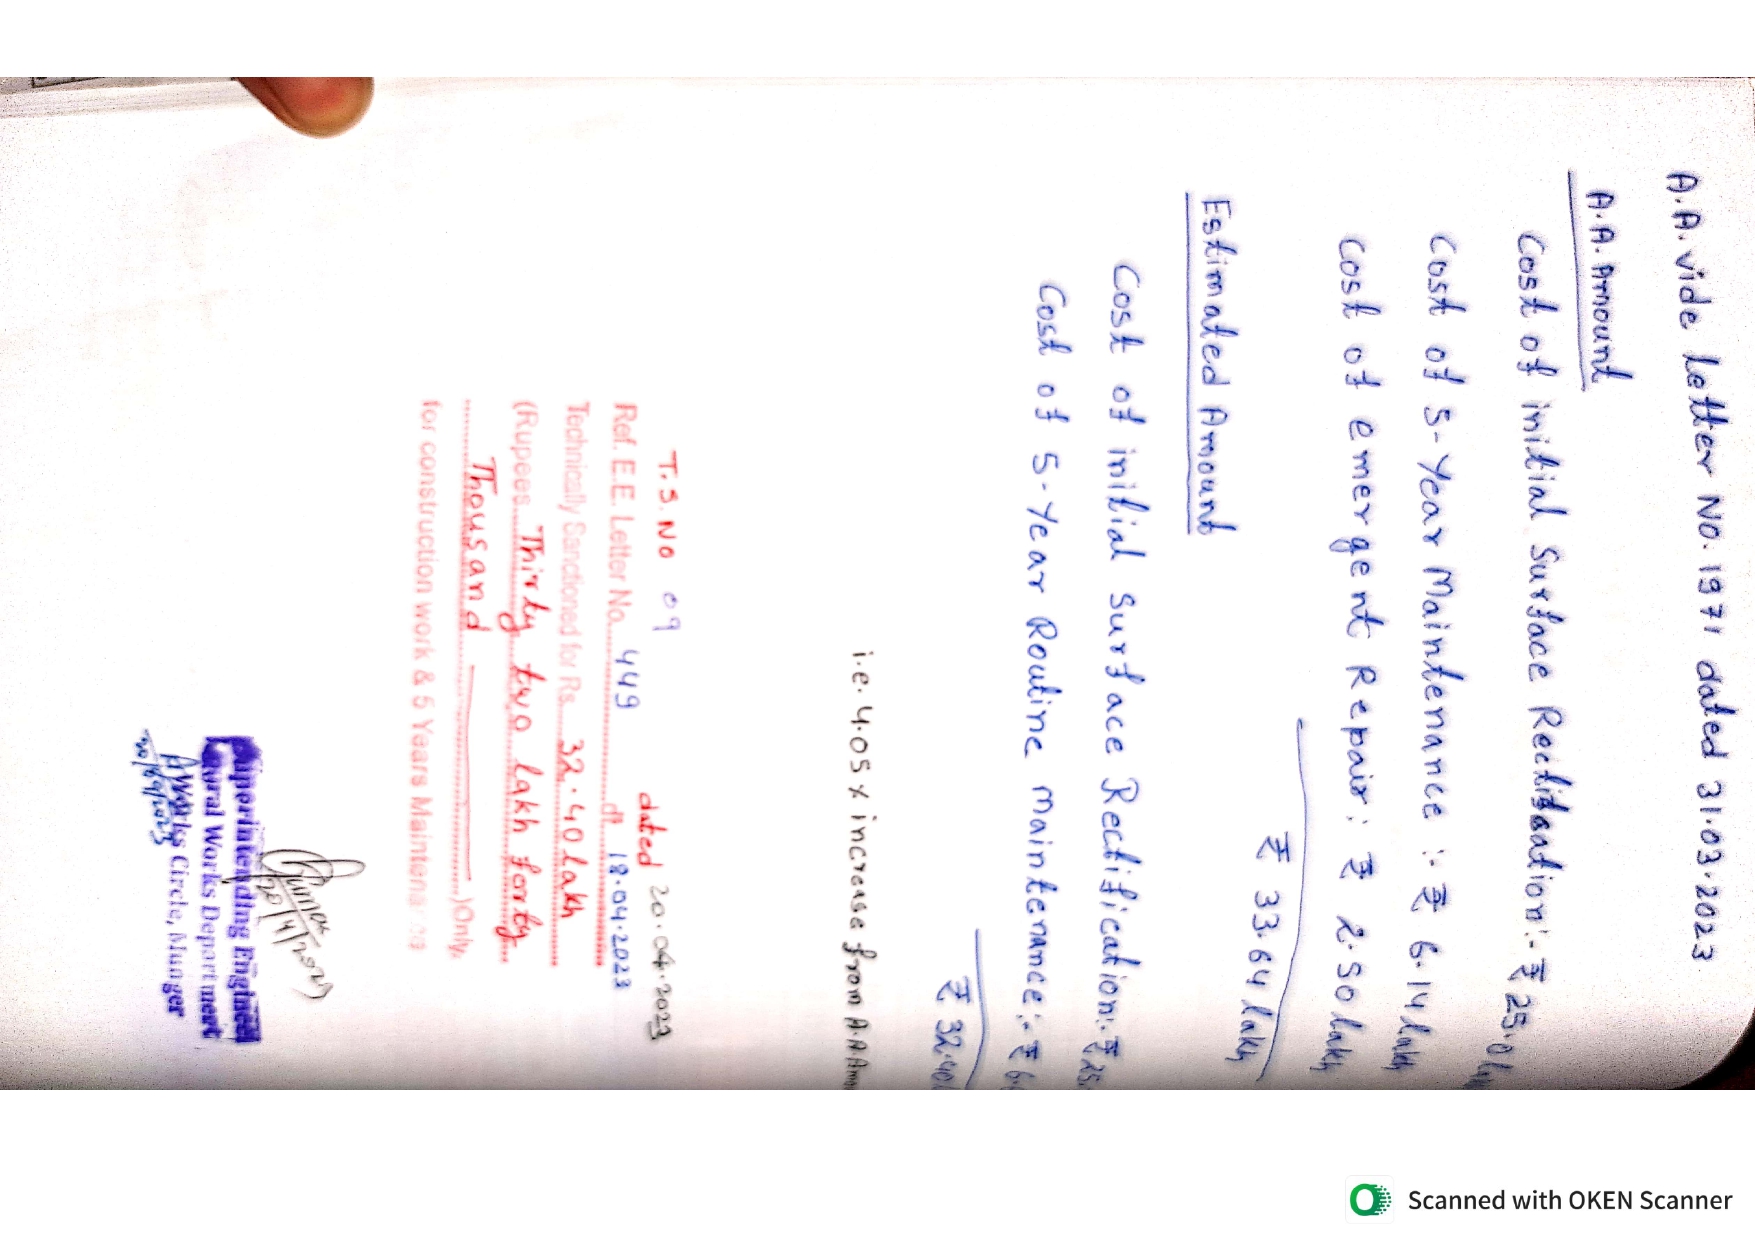 A.A. vide Letter No. 1971 dated 31.03.2023
A.A. Amount
Cost of initial Surface Rectification:- ₹ 25.0
Cost of 5-Year Maintenance :- ₹ 6.14 lakh
Cost of emergent Repair: ₹ 2.50 lakh
₹ 33.64 lakh
Estimated Amount
Cost of initial Surface Rectification:- ₹ 25.
Cost of 5-Year Routine maintenance:- ₹ 6.
₹ 32.40
i.e. 4.05 % increase from A.A Amo
T.S. No 09 dated 20.04.2023
Ref. E.E. Letter No. 449 dt 18.04.2023
Technically Sanctioned for Rs. 32.40 lakh
(Rupees Thirty two lakh forty
Thousand )Only.
for construction work & 5 Years Maintenance
20/4/2023
Superintending Engineer
Rural Works Department
Works Circle, Munger